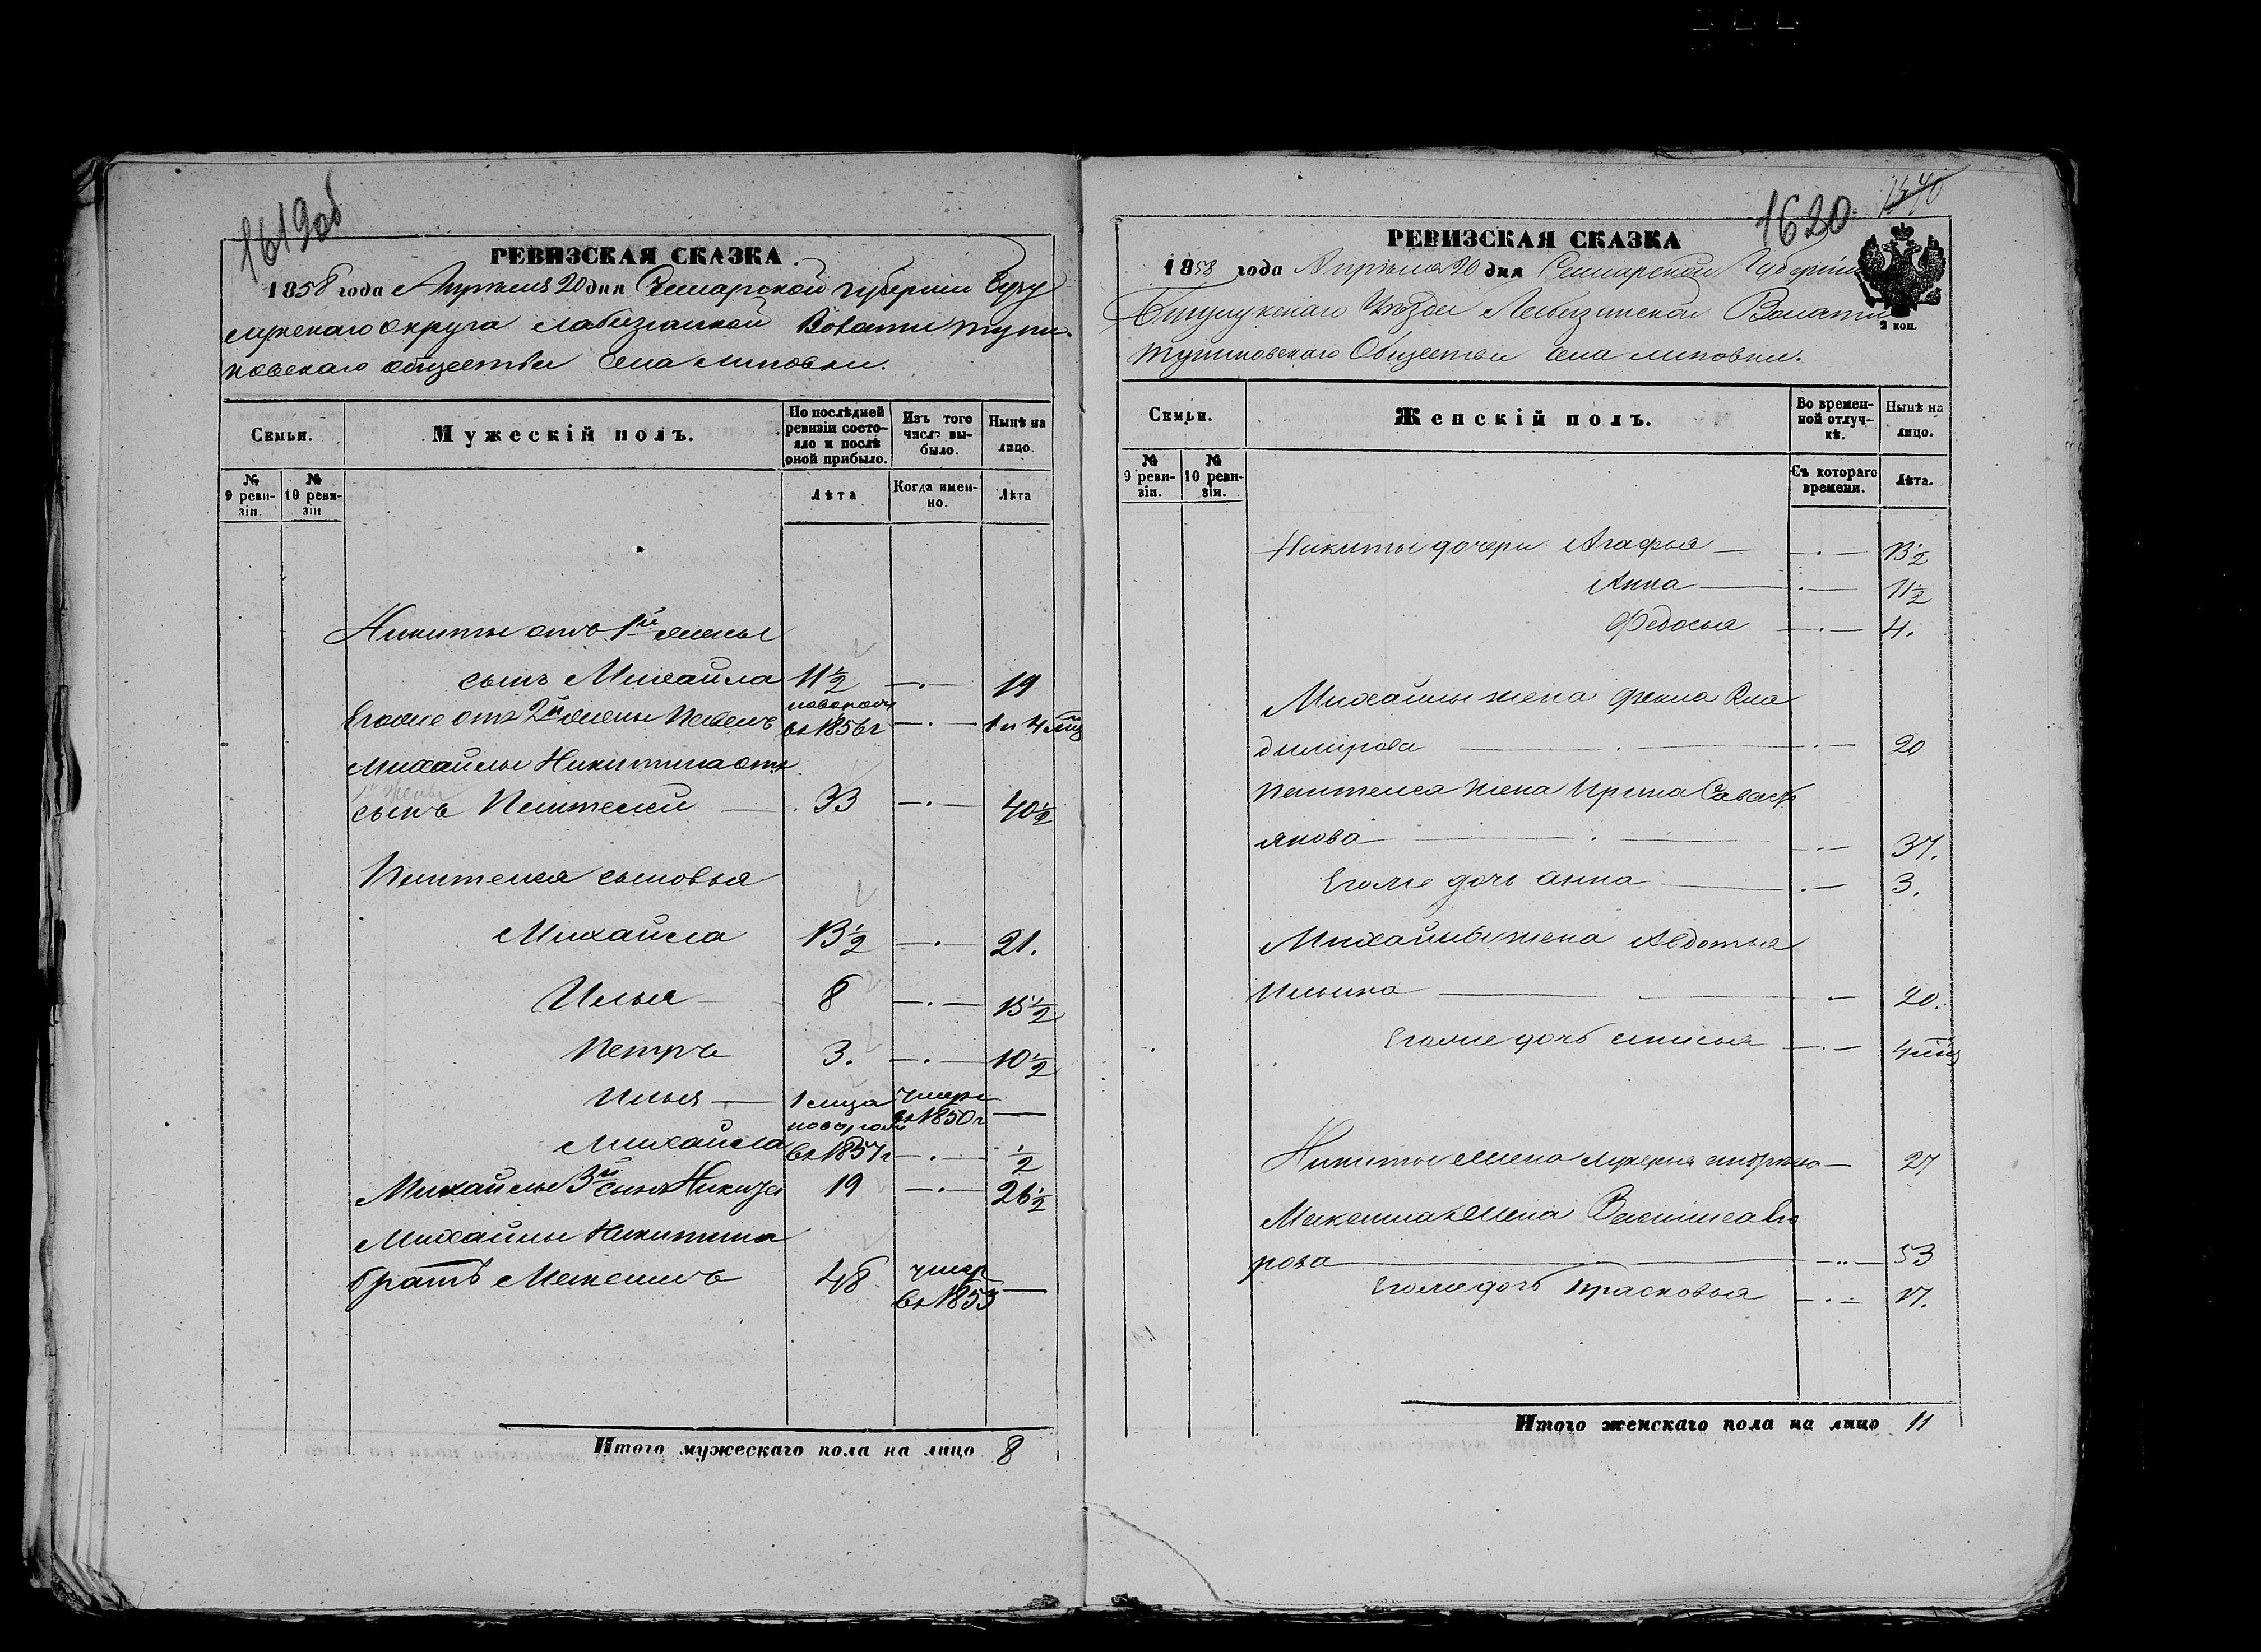 1619об
РЕВИЗСКАЯ СКАЗКА
1858 года Апрѣля 20 дня Самарской губерніи Бугу
округа Волости
общества села Липовки.
Семьи.
Мужескій полъ.
По послѣдней ревизіи состояло и послѣ оной прибыло.
Изъ того числа выбыло.
Нынѣ на лицо.
№ 9 ревизіи
№ 10 ревизіи
Лѣта
Когда именно.
Лѣта
Никиты отъ 1й жены
сынъ Михайла 11½ 19
Егоже отъ 2й жены Павелъ въ 1856г 1 и 4 мц
Михайлы Никитина отъ
1й жены
сынъ Пантелей 33 40½
Пантелея сыновья
Михайла 13½ 21.
Илья 8 15½
Петръ 3. 10½
Илья 1 мца умеръ въ 1850г
Михайла въ 1857г ½
Михайлы 3й сынъ Никита 19 26½
Михайлы Никитина
братъ Максимъ 48 умер въ 1855
Итого мужескаго пола на лицо 8
1620
РЕВИЗСКАЯ СКАЗКА
1858 года Апрѣля 20 дня Самарской Губерніи
Уѣзда Волости
Общества села Липовки.
2 коп.
Семьи.
Женскій полъ.
Во временной отлучкѣ.
Нынѣ на лицо.
№ 9 ревизіи.
№ 10 ревизіи.
Съ котораго времени.
Лѣта.
Никиты дочери Агафья 13½
Анна 11½
Федосья 4.
Михайлы жена Фекла Вла
димірова 20
Пантелея жена Ирина Саваст
янова 37.
Егоже дочь Анна 3.
Михайлы жена Авдотья
Ильина 20.
Егоже дочь 4 мц
Никиты жена Лукерья 27
Максима жена
рова 53
Егоже дочь Прасковья 17.
Итого женскаго пола на лицо 11